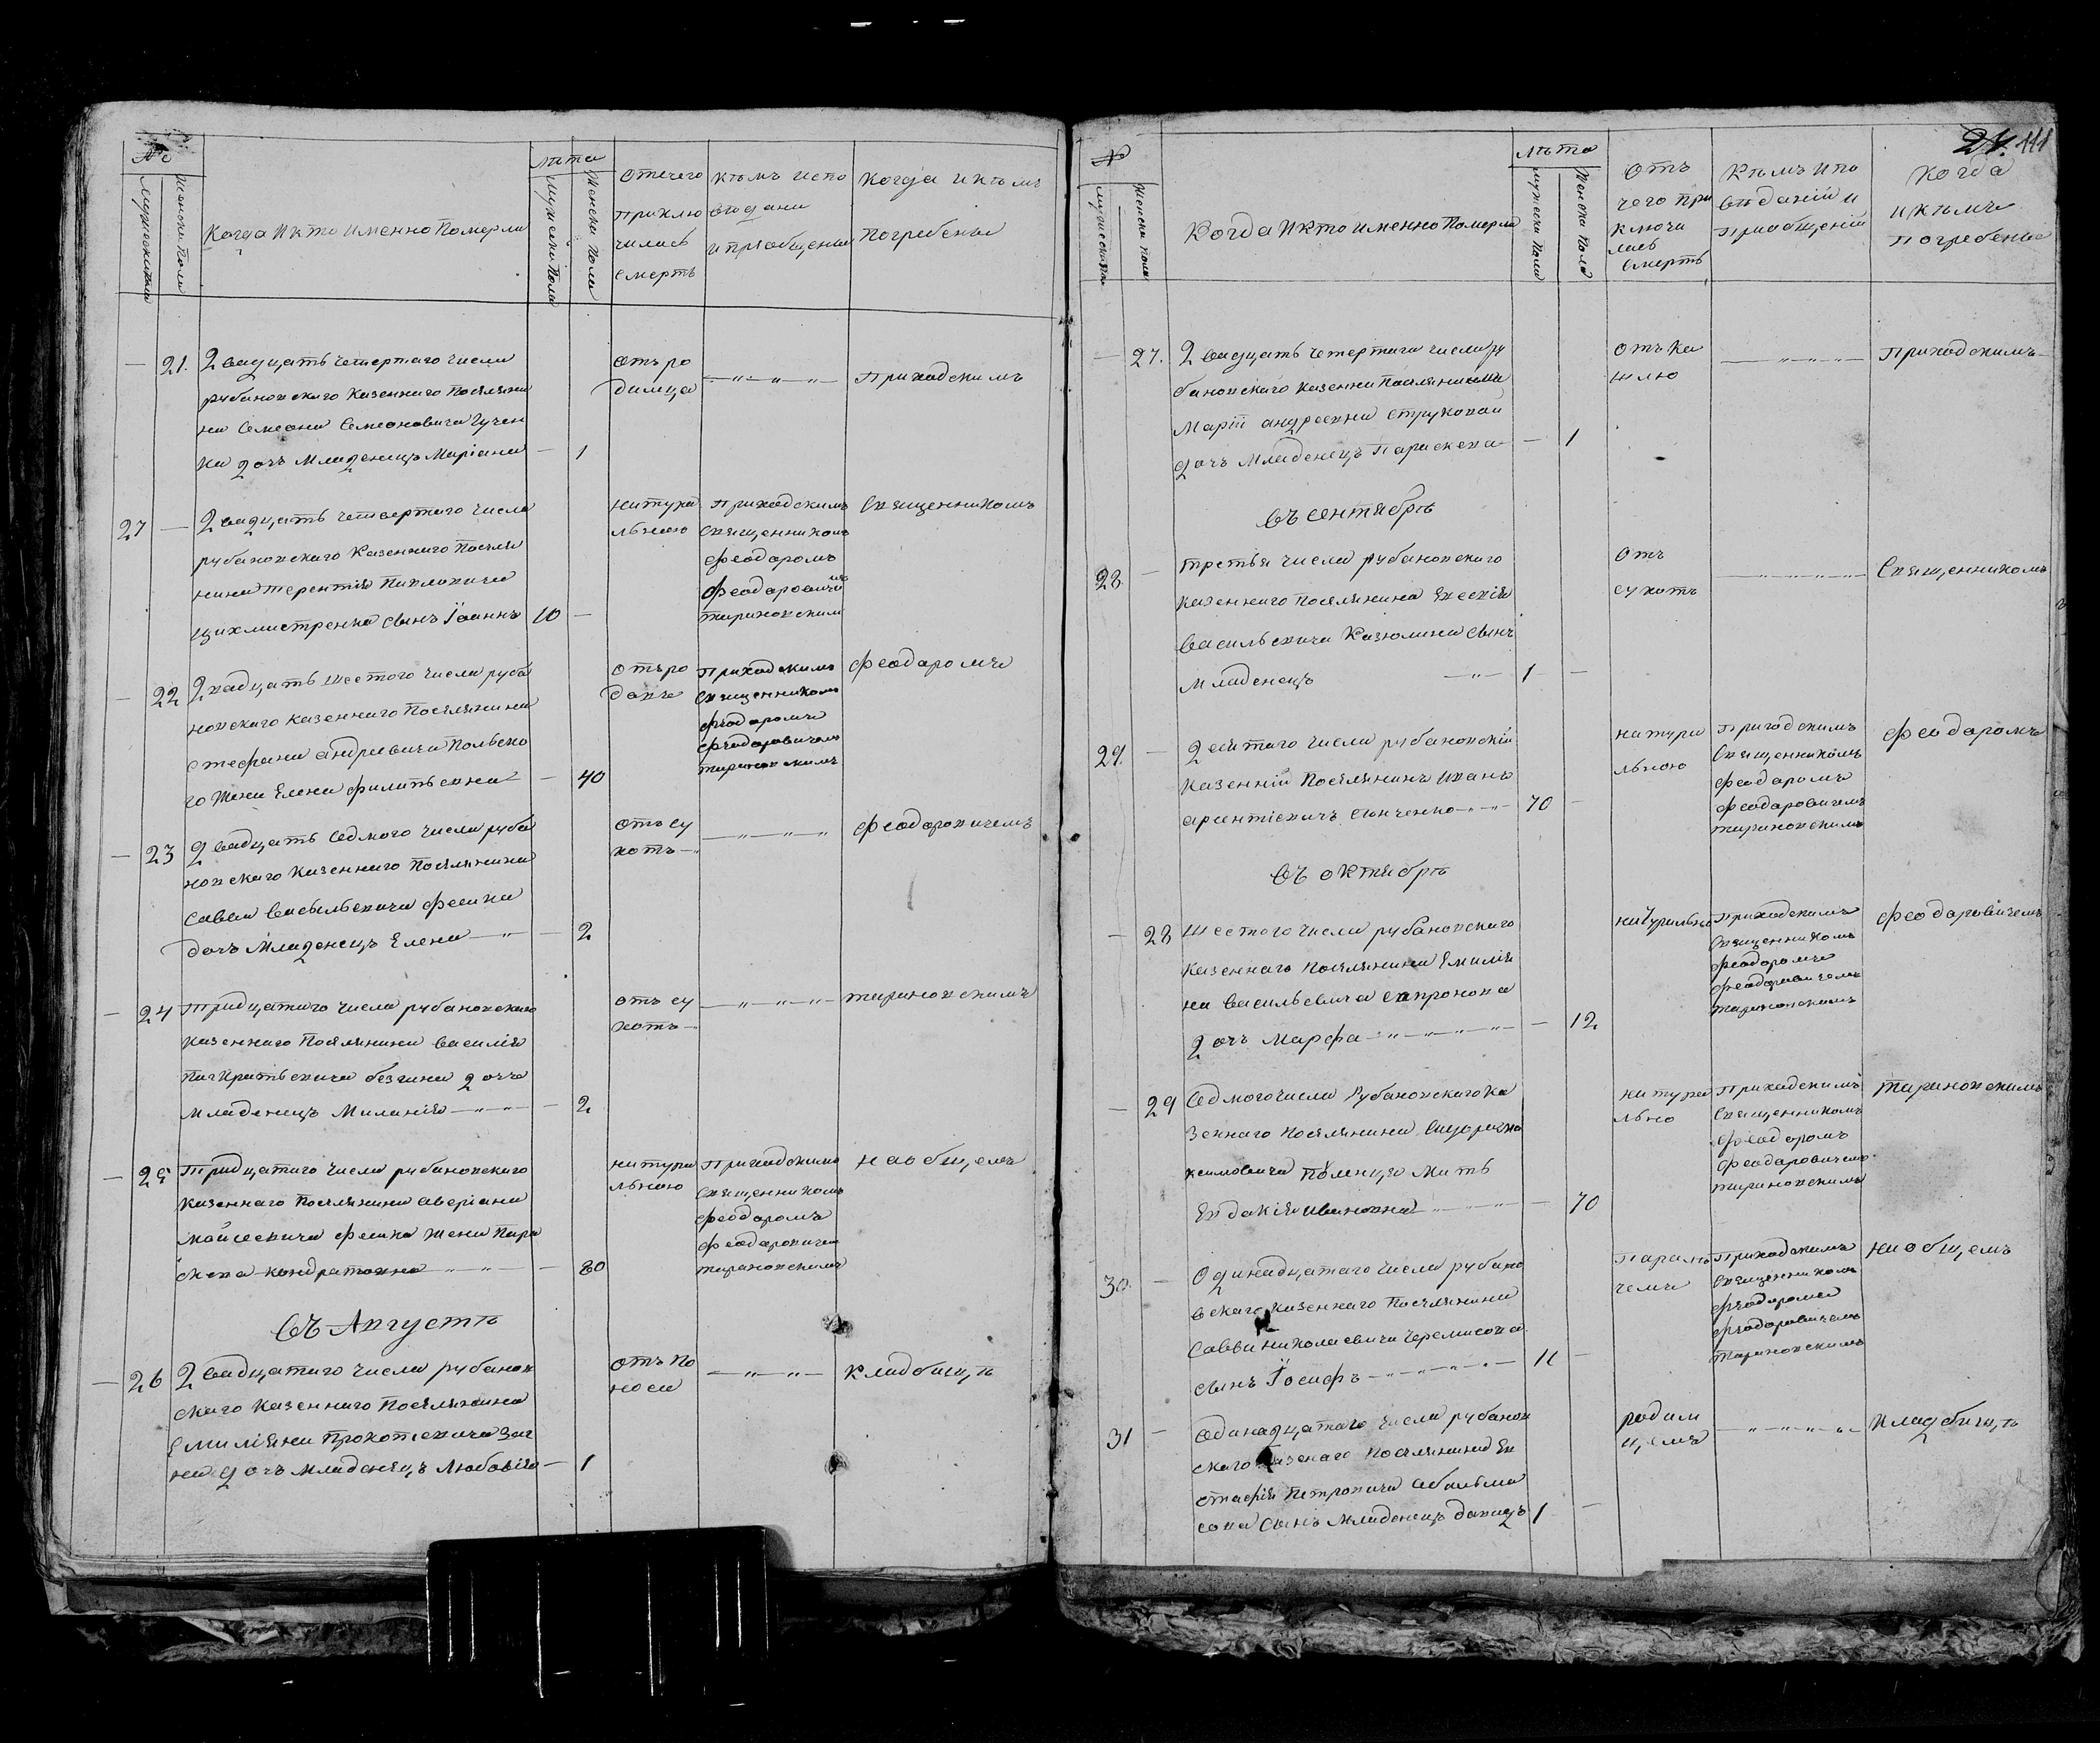 №
Мужеска пола
Женска пола
Когда и кто именно померли
лѣта
Мужеска пола
Женска пола
Отчего приключилась смерть
Кѣмъ исповѣданы и пріобщены
Когда и кѣмъ погребены
— 21. Двадцать четвертаго числа
рубановскаго казеннаго Поселяни
на Семеона Семеоновича
ка дочь Младенецъ Маріана — 1
отъ ро
димца
—„—„—„—
Приходскимъ
27 — Двадцать четвертаго числа
рубановскаго Казеннаго Поселя
нина Терентія Павловича
Цихмистренка сынъ Їоаннъ 10 —
натура
льною
Приходскимъ
Священникомъ
Феодоромъ
Феодоровичемъ
Тарановским
Священникомъ
— 22 Двадцать шестого числа руба
новскаго казеннаго Поселянина
Стефана андреевича Польско
го жена Елена филипьевна — 40
отъ ро
довъ
Приходскимъ
Священникомъ
Феодоромъ
Феодоровичемъ
Тарановскимъ
Феодоромъ
— 23 Двадцать седмого числа руба
новскаго казеннаго Поселянина
Саввы Васильевича Фесика
дочь Младенецъ Елена —„— 2
отъ су
хотъ —„
—„—„—„
Феодоровичемъ
— 24 Тридцатаго числа рубановскаго
казеннаго Поселянина Василія
Панкратьевича дочь
Младенецъ Миланія —„— — 2
отъ су
хотъ —
—„—„—„—
Тарановскимъ
— 25 Тридцатаго числа рубановскаго
казеннаго Поселянина аверіана
Мойсеевича Фесика жена Пара
скева кондратовна —„—„— 80
натура
льною
Приходскимъ
Священникомъ
Феодоромъ
Феодоровичем
Тарановскимъ
на общемъ
Въ Августѣ
— 26 Двадцатаго числа рубанов
скаго казеннаго Поселянина
Емиліяна Прокопіевича
на дочь младенецъ Любовія — 1
отъ по
носа
—„—„—
Кладбищѣ
24. 111
№
Мужеска пола
Женска пола
Когда и кто именно Померли
лѣта
мужеска пола
Женска пола
Отъ
чего при
ключи
лась
смерть
Кѣмъ испо
вѣданій и
пріобщеній
Когда
и кѣмъ
погребены
— 27. Двадцать четертаго числа ру
бановскаго казенна поселянина
Маріи андреевны Струковой
дочь Младенецъ Параскева — 1
отъ ка
шлю
—„—„—„—
Приходскимъ
Въ сентябрѣ
28 — третья числа рубановскаго
казеннаго Поселянина Евсевія
Васильевича Казюлина сынъ
Младенецъ —„— 1 —
отъ
сухотъ
—„—„—„—
Священникомъ
29. — Десятаго числа рубановскій
Казенній Поселянинъ Иванъ
арсентіевичъ Синченко —„—„— 70 —
натура
льною
Приходскимъ
Священникомъ
Феодоромъ
Феодоровичемъ
Тарановскимъ
Феодоромъ
Въ октябрѣ
— 28 Шестого числа рубановскаго
казеннаго Поселянина Емилія
на Васильевича Сапронова
Дочь Марфа —„—„—„—„— — 12
натуральна
Приходскимъ
Священникомъ
Феодоромъ
Феодоровичемъ
Тарановскимъ
Феодоровичемъ
— 29 Седмого числа Рубановскаго ка
зеннаго Поселянина
ксимовича мать
Евдакія ивановна —„—„— — 70
натура
льно
Приходскимъ
Священникомъ
Феодоромъ
Феодоровичемъ
Тарановскимъ
Тарановскимъ
30. — Одинадцатаго числа рубано
вскаго казеннаго Поселянина
Савви николаевича Черемисова
сынъ Їосифъ —„—„—„— 11 —
Парали
чемъ
Приходскимъ
Священникомъ
Феодоромъ
Феодоровичемъ
Тарановскимъ
на общемъ
31 — Одинадцатаго числа рубанов
скаго казенаго Поселянина Ев
стафія Петровича
сова сынъ Младенецъ Давидъ 1 —
родим
цемъ
—„—„—„—
Кладбищѣ